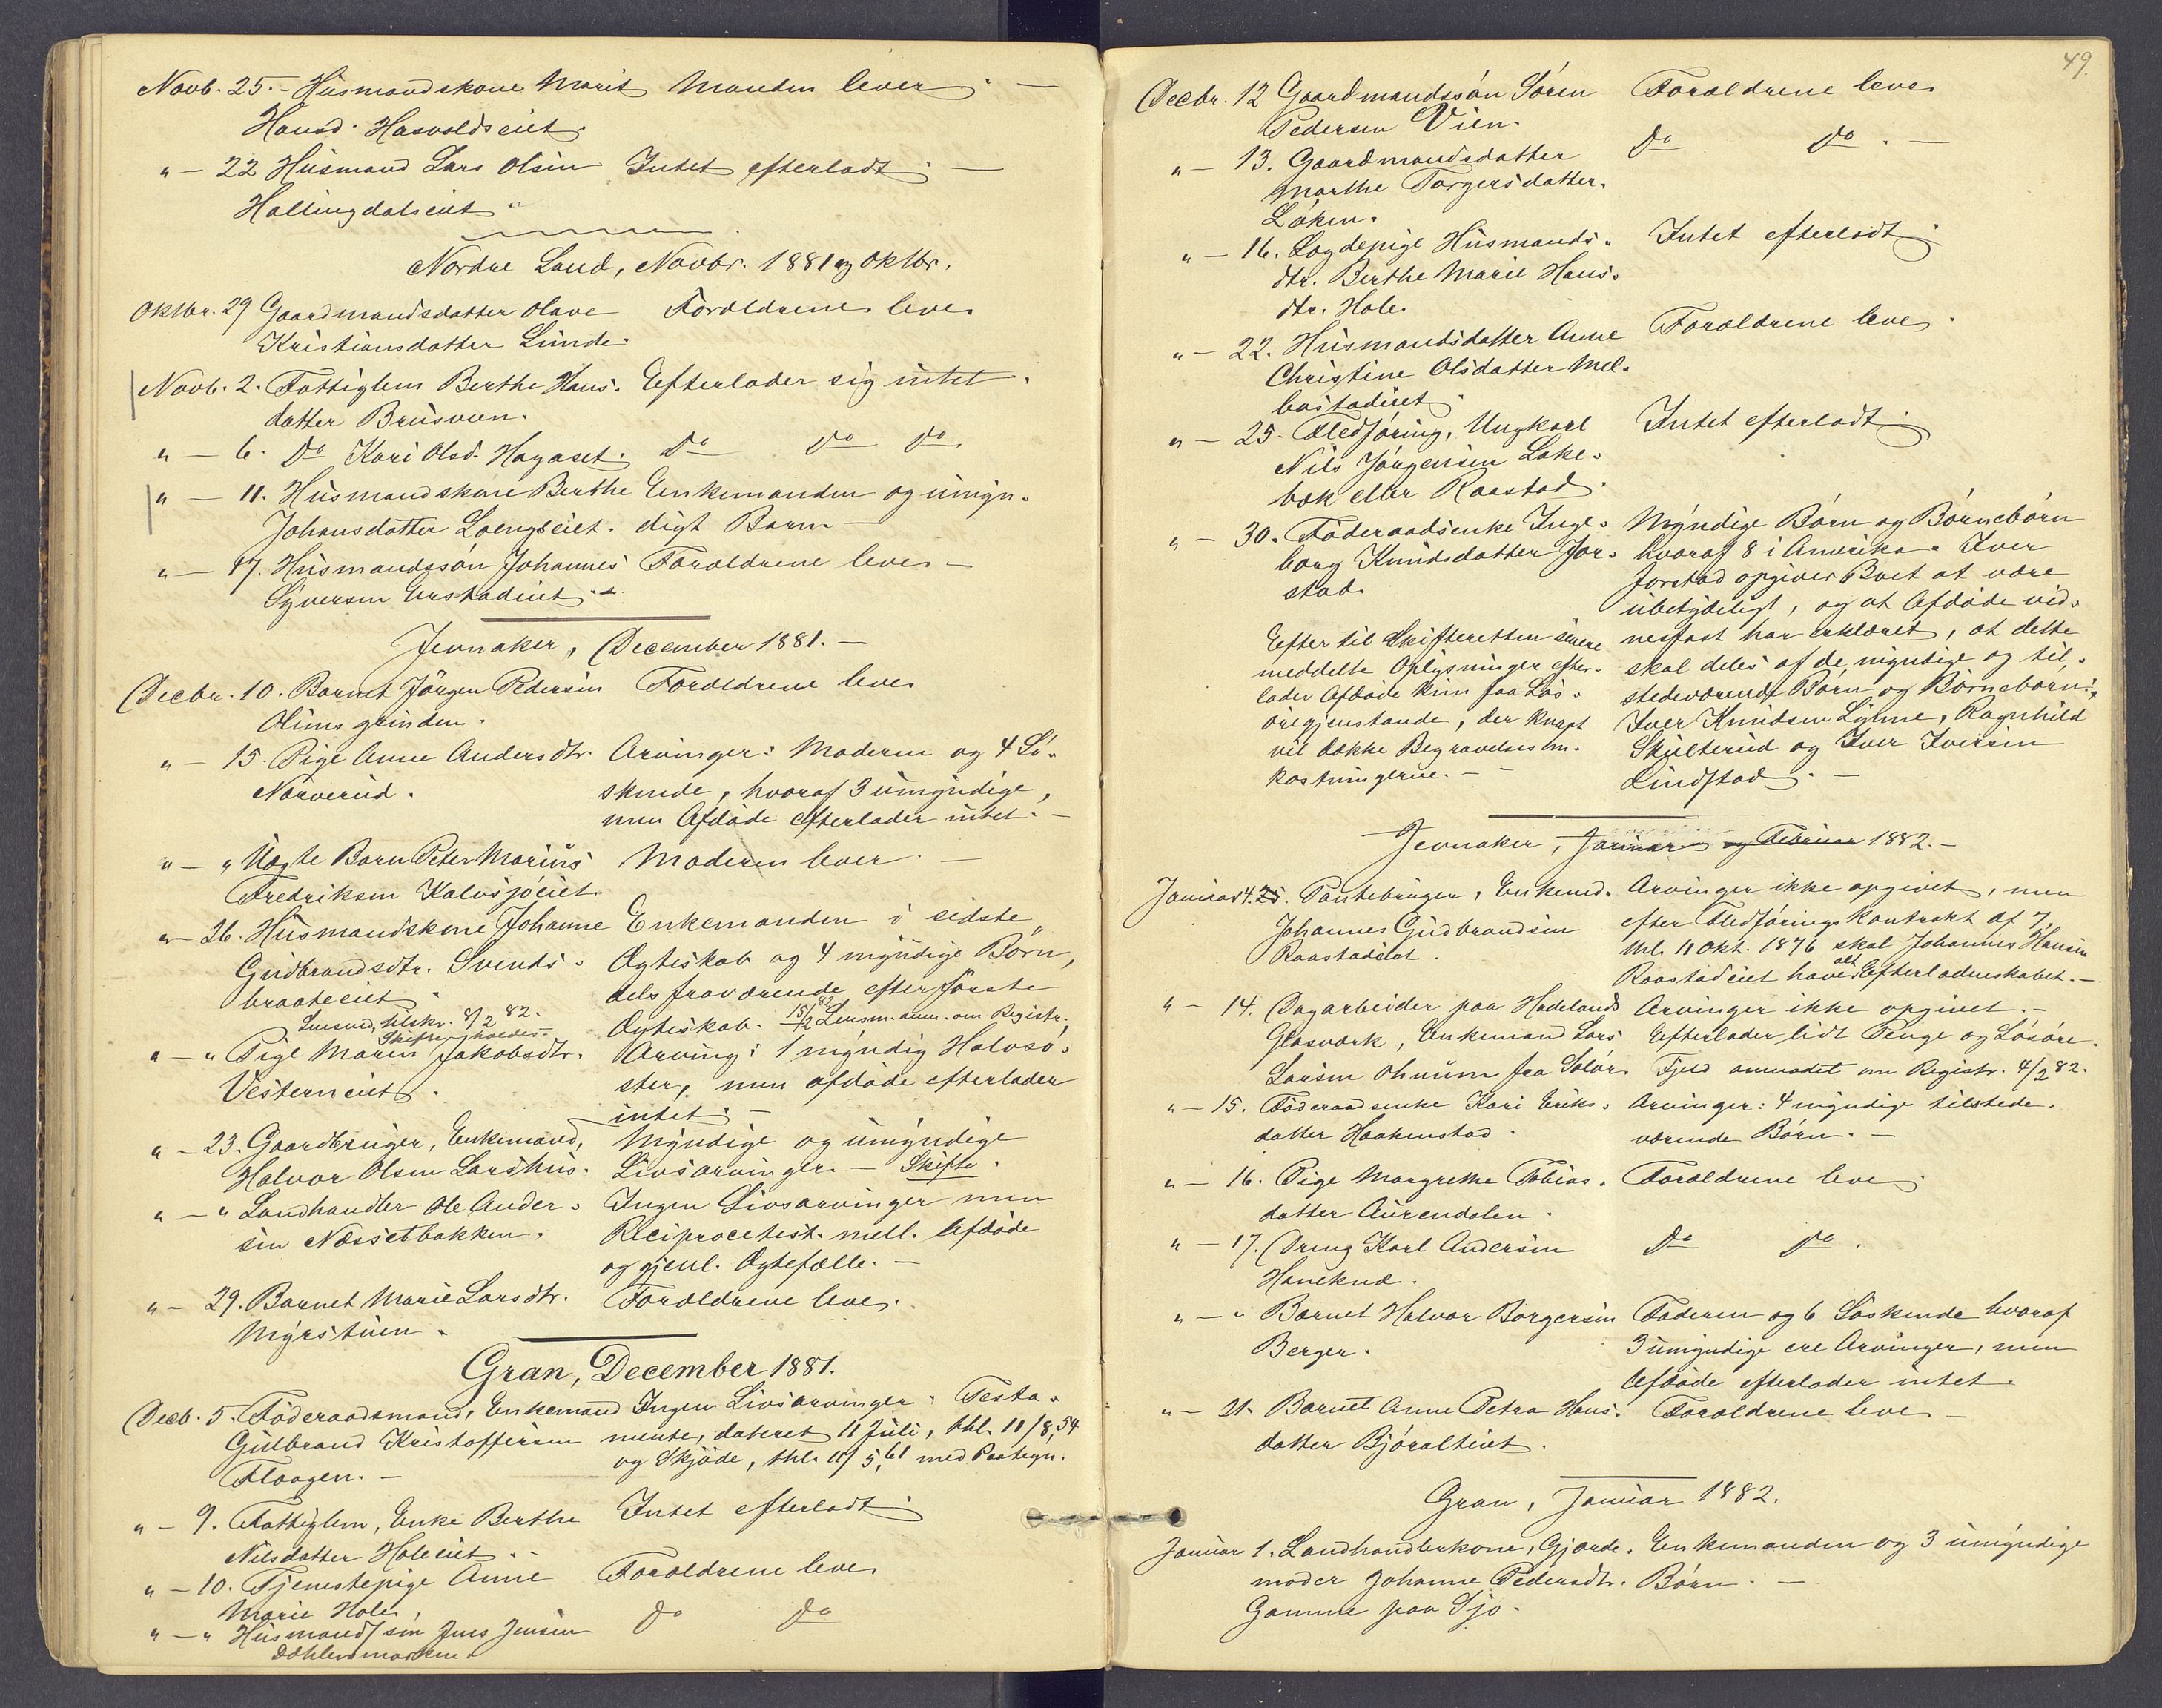 Novb. 25. - Husmandskone Marit Manden lever. —
Hansd. Hasvoldseiet.
" — 22 Husmand Lars Olsen Intet efterladt. —
Hallingdalseiet.
Nordre Land, Novbr. 1881 og Oktbr.
Oktbr. 29 Gaardmandsdatter Olave Forældrene leve.
Kristiansdatter Lunde.
Novb. 2. Fattiglem Berthe Hans- Efterlader sig intet.
datter Brusveen.
" — 6. Do Kari Olsd. Hagaset. Do Do Do.
" — 11. Husmandskone Berthe Enkemanden og umyn-
Johansdatter Loengseiet. digt Barn. —
" — 17. Husmandssøn Johannes Forældrene leve. —
Syversen Erstadeiet. —
Jevnaker, December 1881. —
Decbr. 10. Barnet Jørgen Pedersen Forældrene leve.
Olimsgrinden.
" — 15. Pige Anne Andersdtr. Arvinger: Moderen og 4 Sø-
Narverud. skende, hvoraf 3 umyndige,
men Afdøde efterlader intet. —
" — " Uægte Barn Peter Marius Moderen lever. —
Fredriksen Kalvsjøeiet.
" — 26. Husmandskone Johanne Enkemanden i sidste
Gudbrandsdtr. Svends- Ægteskab og 4 myndige Børn,
braateeiet. dels fraværende efter første
Lensmd. tilskr. 8/2 82. Ægteskab. 15/2 82 Lensm. anm. om Registr.
Skifte holdes.
" — " Pige Maren Jakobsdtr. Arving: 1 myndig Halvsø-
Vesterneiet. ster, men afdøde efterlader
intet. —
" — 23. Gaardbruger, Enkemand, Myndige og umyndige
Halvor Olsen Larshus. Livsarvinger. — Skifte.
" — " Landhandler Ole Ander- Ingen Livsarvinger men
sen Næssetbakken. Reciprocetest. mell. Afdøde
og gjenl. Ægtefælle. —
" — 29. Barnet Marie Larsdtr. Forældrene leve.
Myrstuen.
Gran, December 1881.
Decb. 5. Føderaadsmand, Enkemand Ingen Livsarvinger. Testa-
Gulbrand Kristoffersen mente, dateret 11 Juli, thl. 11/8, 54
Flaagen. — og Skjøde, thl. 11/5, 61 med Paategn.
" — 9. Fattiglem, Enke Berthe Intet efterladt.
Nilsdatter Holeeiet. —
" — 10. Tjenestepige Anne Forældrene leve.
Marie Hole.
" — " Husmandssøn Jens Jensen Do Do
Dæhlenmarken
49.
Decbr. 12 Gaardmandssøn Søren Forældrene leve.
Pedersen Vien.
" — 13. Gaardmandsdatter Do Do. —
Marthe Torgersdatter
Løken.
" — 16. Lægdepige Husmands- Intet efterladt.
dtr. Berthe Marie Hans-
dtr. Hole.
" — 22. Husmandsdatter Anne Forældrene leve.
Christine Olsdatter Mel-
bostadeiet.
" — 25. Fledføring, Ungkarl Intet efterladt.
Nils Jørgensen Lake-
bæk eller Raastad.
" — 30. Føderaadsenke Inge- Myndige Børn og Børnebørn
borg Knudsdatter Jor- hvoraf 8 i Amerika. Iver
stad. Jorstad opgiver Boet at være
ubetydeligt, og at Afdøde vid-
Efter til Skifteretten senere nesfast har erklæret, at dette
meddelte Oplysninger efter- skal deles af de myndige og til-
lader Afdøde kun faa Løs- stedeværende Børn og Børnebørn:
øregjenstande, der knapt Iver Knudsen Lynne, Ragnhild
vil dække Begravelsesom- Skulterud og Iver Iversen
kostningerne. — Lindstad. —
Jevnaker, Januar og Februar 1882. —
Januar 4. 25. Pantebruger, Enkemd. Arvinger ikke opgivet, men
Johannes Gudbrandsen efter Fledførings Kontrakt af 7/
Raastadeiet. thl. 11 Okt. 1876 skal Johannes Hansen
Raastadeiet have alt Efterladenskabet. —
" — 14. Dagarbeider paa Hadelands Arvinger ikke opgivet. —
Glasværk, Enkemand Lars Efterlader lidt Penge og Løsøre.
Larsen Ohnum fra Solør. Fjeld anmodet om Registr. 4/2 82.
" — 15. Føderaadsenke Kari Eriks- Arvinger: 4 myndige tilstede-
datter Haakenstad. værende Børn. —
" — 16. Pige Margrethe Tobias- Forældrene leve.
datter Aurendalen.
" — 17. Dreng Karl Andersen Do Do.
Haneknæ.
" — " Barnet Halvor Borgersen Faderen og 6 Søskende hvoraf
Berger. 3 umyndige ere Arvinger, men
Afdøde efterlader intet.
" — 21. Barnet Anne Petra Hans- Forældrene leve. —
datter Bjøralteiet.
Gran, Januar 1882.
Januar 1. Landhandlerkone, Gjorde- Enkemanden og 3 umyndige
moder Johanne Pedersdtr. Børn. —
Gamme paa Sjo.